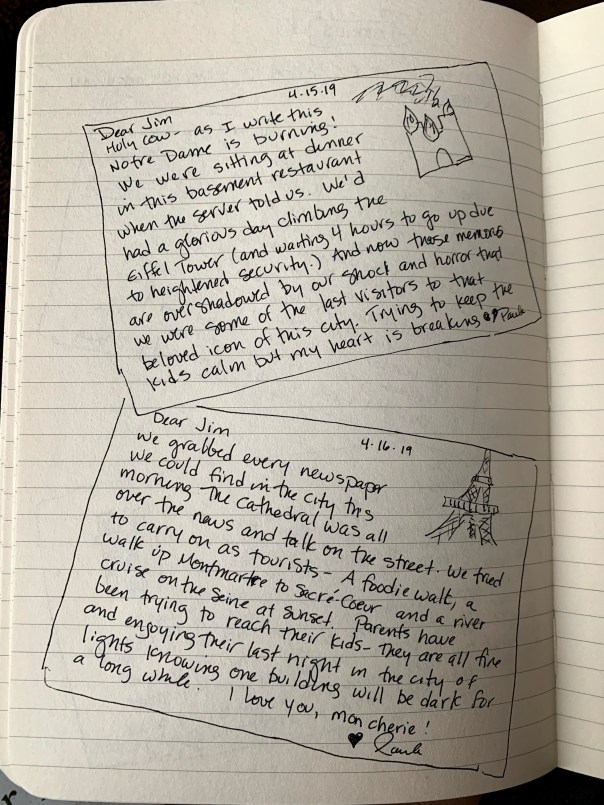 4.15.19
Dear Jim
Holy cow - as I write this
Notre Dame is burning!
We were sitting at dinner
in this basement restaurant
when the server told us. We'd
had a glorious day climbing the
Eiffel Tower (and waiting 4 hours to go up due
to heightened security.) And now those memories
are overshadowed by our shock and horror that
we were some of the last visitors to that
beloved icon of this city. Trying to keep the
kids calm but my heart is breaking. Paula
Dear Jim
4.16.19
We grabbed every newspaper
we could find in the city this
morning. The cathedral was all
over the news and talk on the street. We tried
to carry on as tourists - A foodie walk, a
walk up Montmartre to Sacré-Coeur and a river
cruise on the Seine at sunset. Parents have
been trying to reach their kids - They are all fine
and enjoying their last night in the city of
lights knowing one building will be dark for
a long while. I love you, mon cherie!
♥ Paula